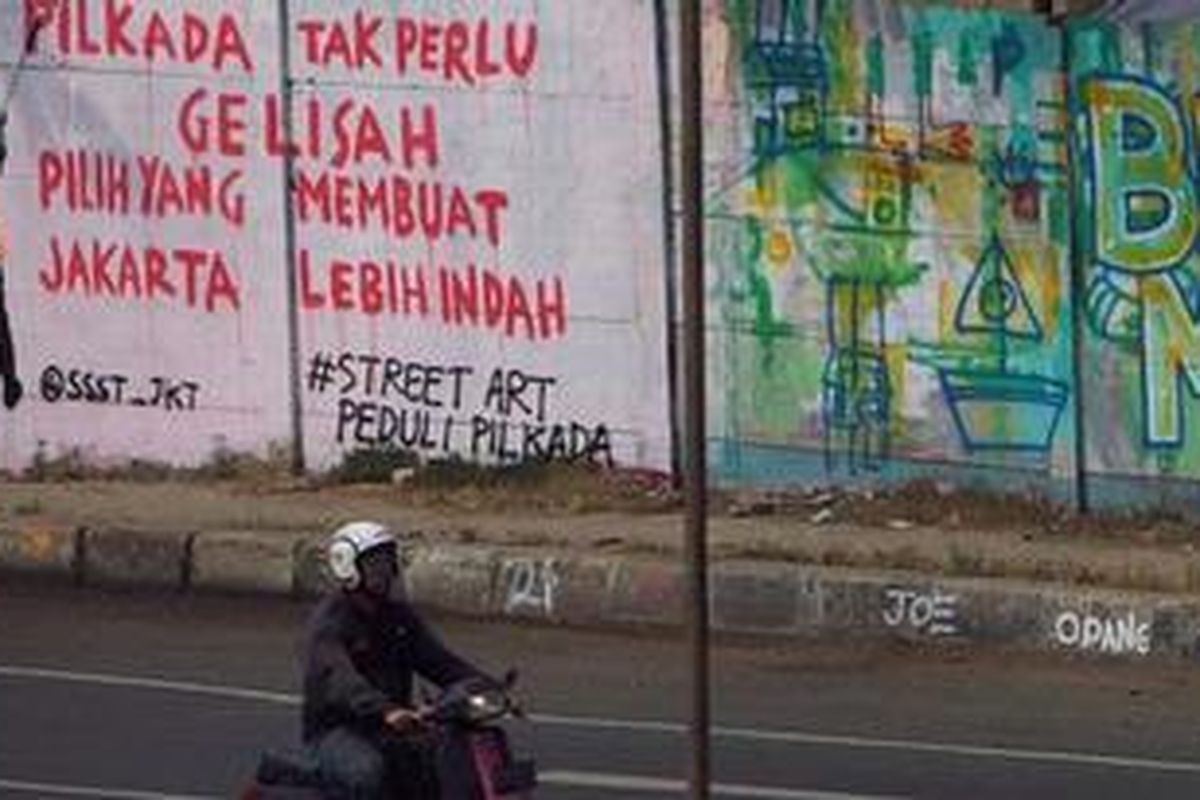 PILKADA TAK PERLU
GELISAH
PILIH YANG MEMBUAT
JAKARTA LEBIH INDAH
@SSST_JKT
#STREET ART
PEDULI PILKADA
B
N
JOE